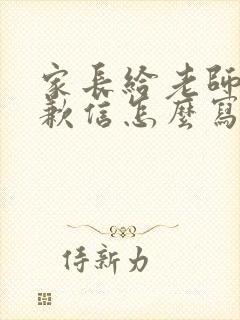 家長給老師
歉信怎麼寫
侍新力